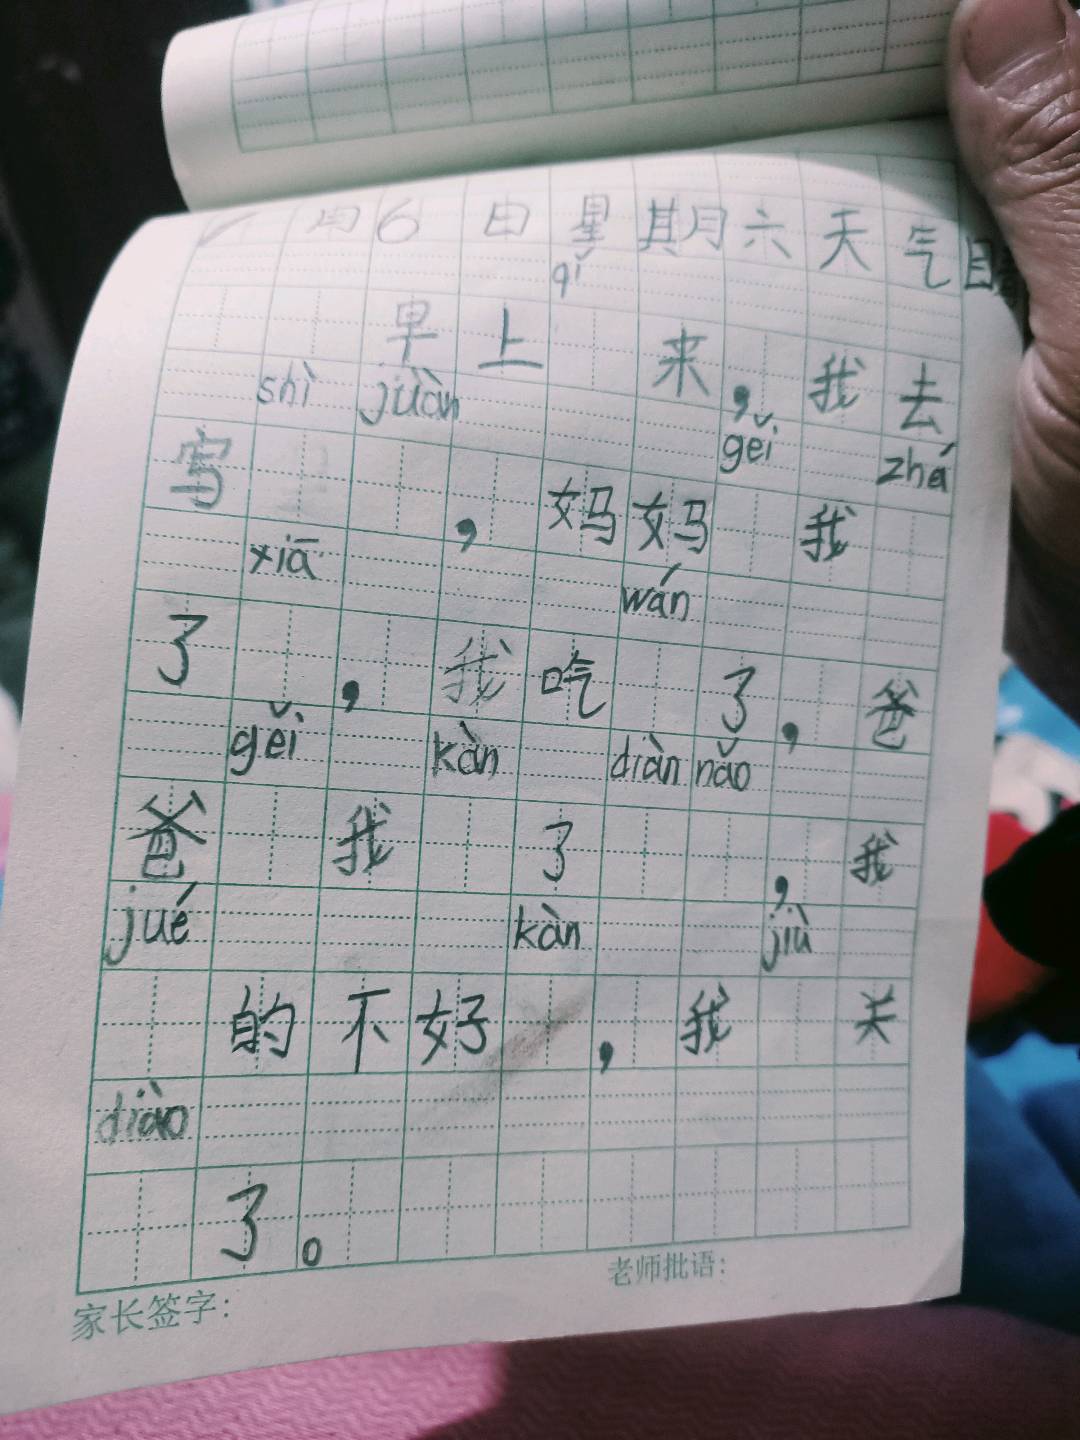 月6日 星期六 天气晴
qǐ
早上 来，我去
shì juàn gěi zhá
写 ，妈妈 我
xiā wán
了 ，我吃 了，爸
gěi kàn diàn nǎo
爸 我 了 ，我
jué kàn jiù
的不好 ，我 关
diào
了。
家长签字： 老师批语：